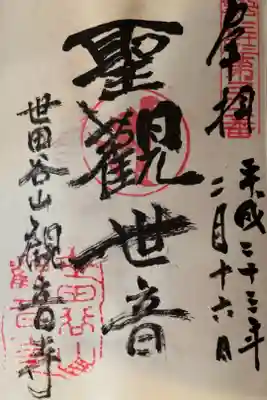 奉拝
平成二十三年
二月十六日
聖觀世音
世田谷山觀音寺